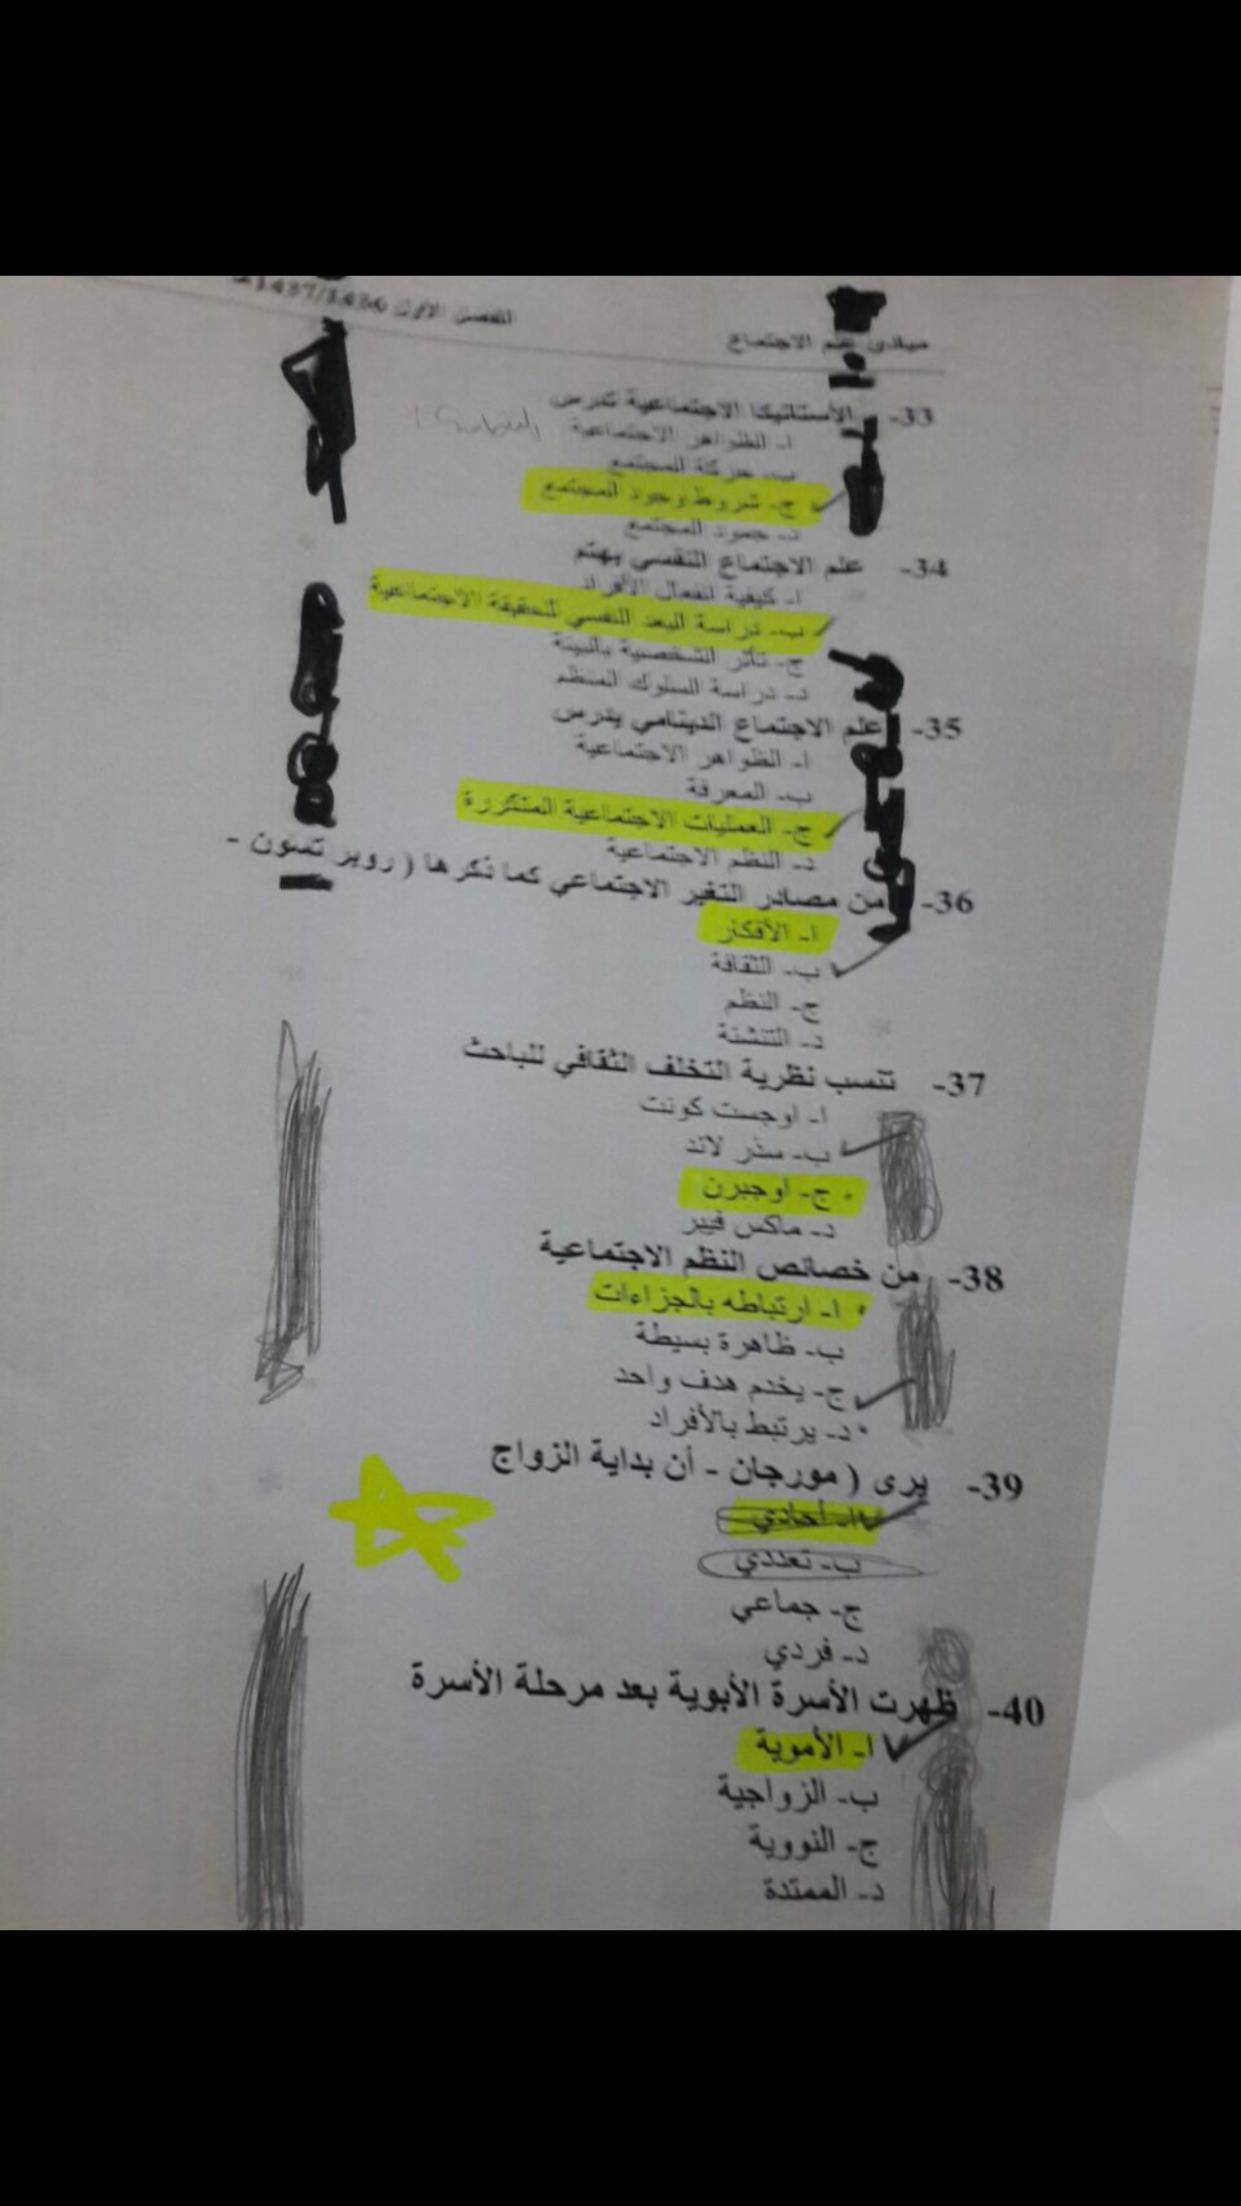 مبادئ علم الاجتماع
الفصل الأول 1437/1436
33- الأستاتيكا الاجتماعية تدرس
ا- الظواهر الاجتماعية
ب- حركة المجتمع
ج- شروط وجود المجتمع
د- جمود المجتمع
34- علم الاجتماع النفسي يهتم
ا- كيفية انفعال الأفراد
ب- دراسة البعد النفسي للحقيقة الاجتماعية
ج- تأثر الشخصية بالبيئة
د- دراسة السلوك المنظم
35- علم الاجتماع الدينامي يدرس
ا- الظواهر الاجتماعية
ب- المعرفة
ج- العمليات الاجتماعية المتكررة
د- النظم الاجتماعية
36- من مصادر التغير الاجتماعي كما ذكرها ( روبرتسون -
ا- الأفكار
ب- الثقافة
ج- النظم
د- التنشئة
37- تنسب نظرية التخلف الثقافي للباحث
ا- اوجست كونت
ب- سذر لاند
ج- اوجبرن
د- ماكس فيبر
38- من خصائص النظم الاجتماعية
ا- ارتباطه بالجزاءات
ب- ظاهرة بسيطة
ج- يخدم هدف واحد
د- يرتبط بالأفراد
39- يرى ( مورجان - أن بداية الزواج
ا- أحادي
ب- تعددي
ج- جماعي
د- فردي
40- ظهرت الأسرة الأبوية بعد مرحلة الأسرة
ا- الأموية
ب- الزواجية
ج- النووية
د- الممتدة